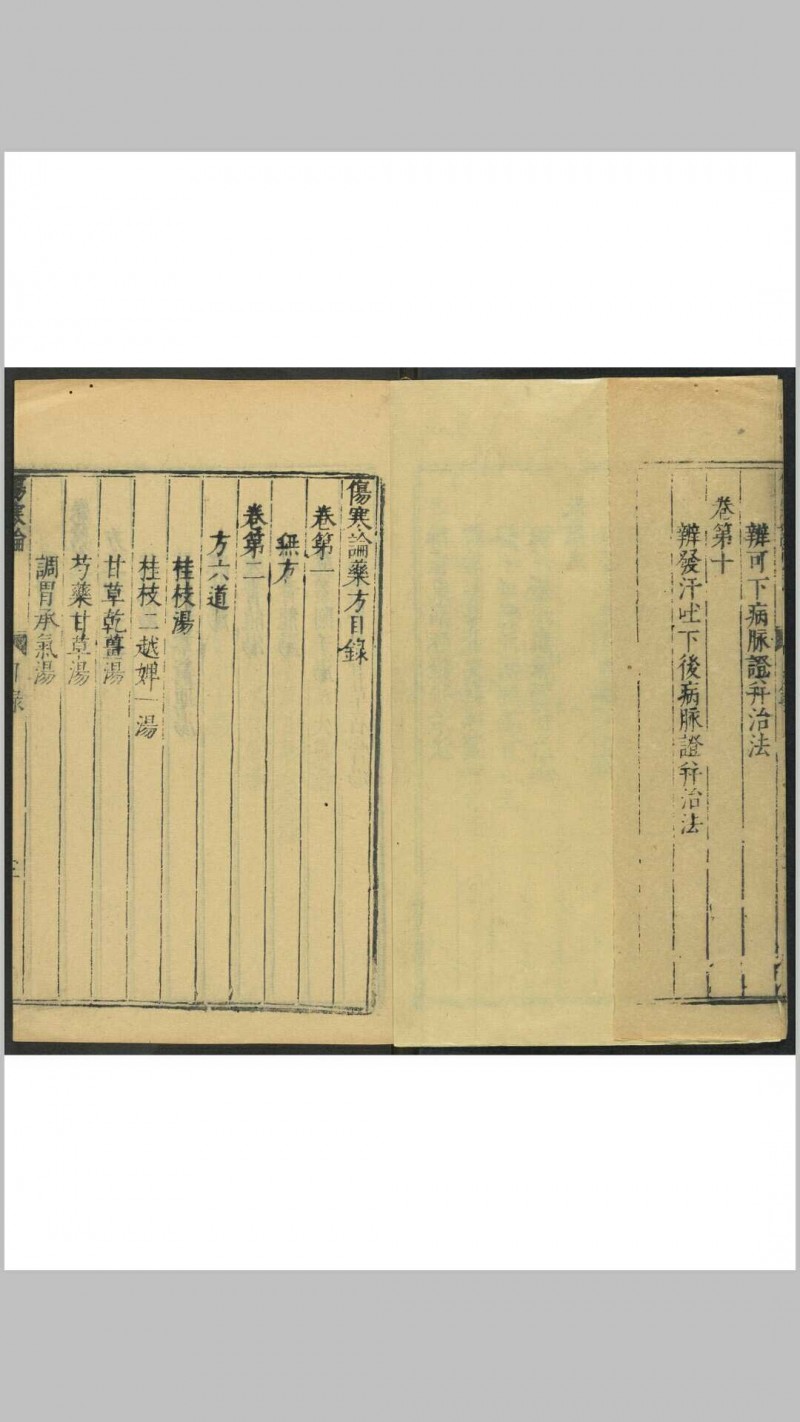 辨可下病脉證并治法
卷第十
辨發汗吐下後病脉證并治法
傷寒論藥方目錄
卷第一
無方
卷第二
方六道
桂枝湯
桂枝二越婢一湯
甘草乾薑湯
芍藥甘草湯
調胃承氣湯
傷寒論
目錄